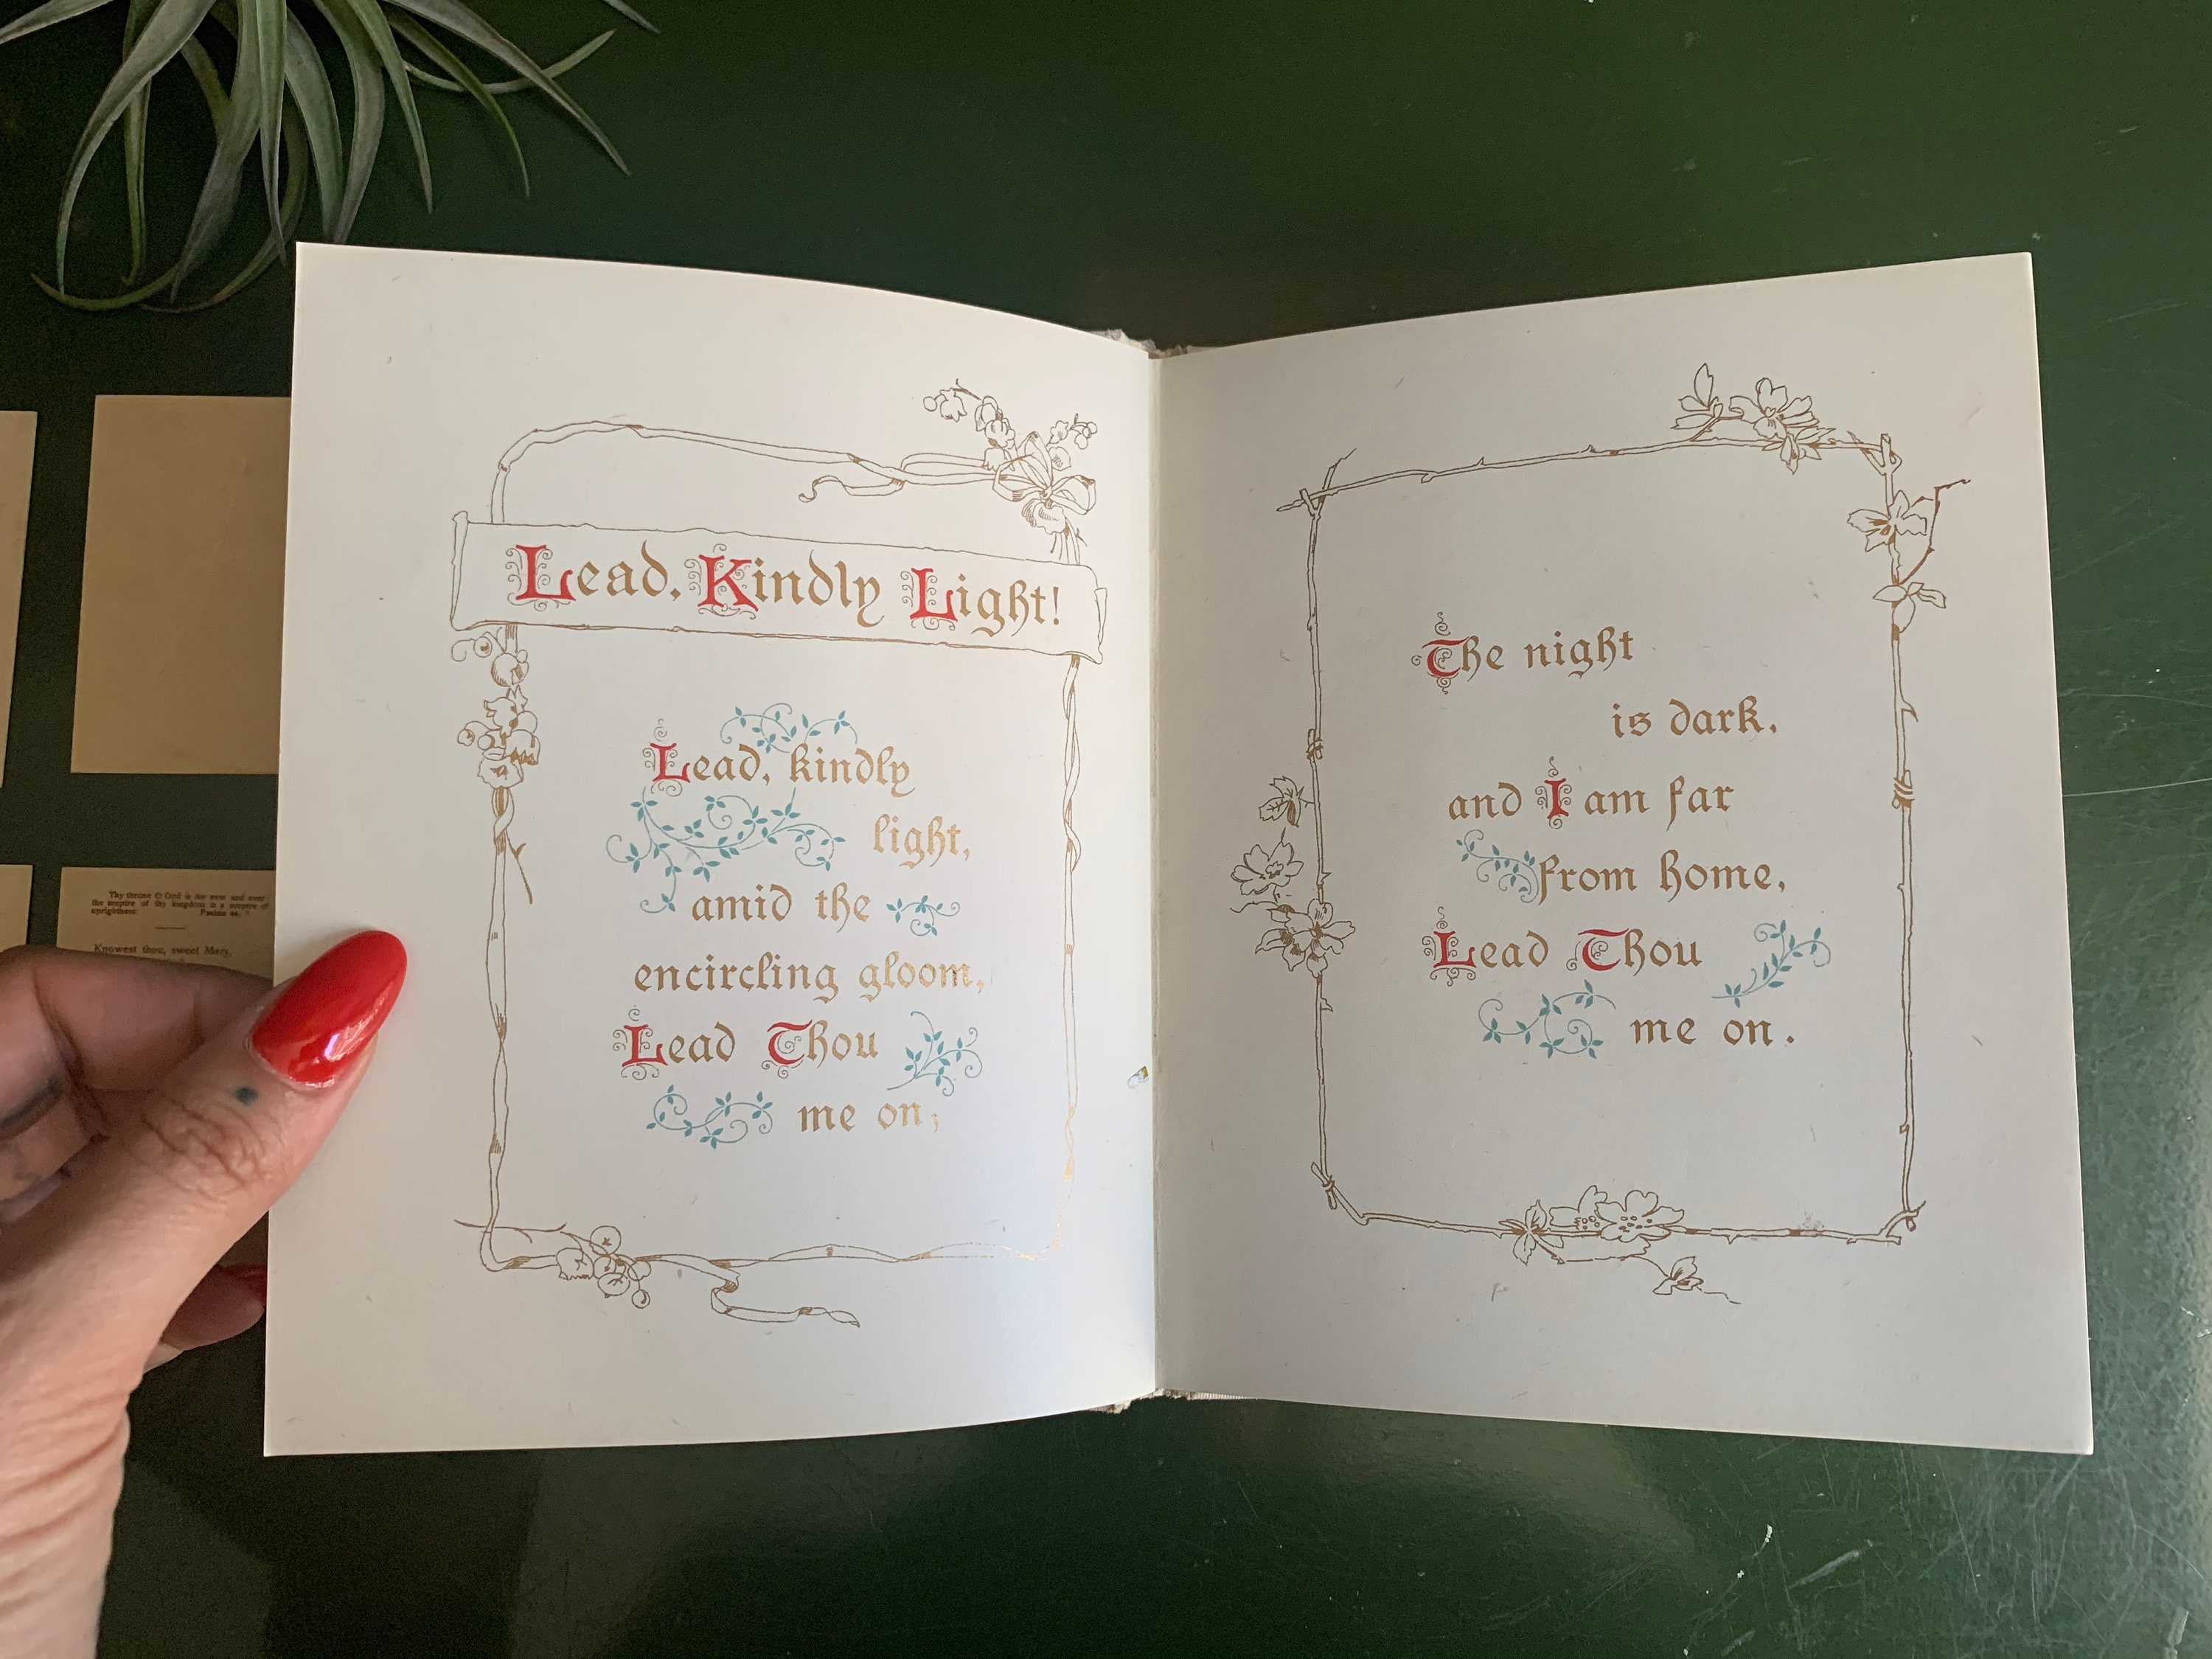 Lead, Kindly Light!
Lead, kindly
light,
amid the
encircling gloom,
Lead Thou
me on;
The night
is dark,
and I am far
from home,
Lead Thou
me on.
Thy throne O God is for ever and ever:
the sceptre of thy kingdom is a sceptre of
uprightness. Psalms 44, 7
Knowest thou, sweet Mary,